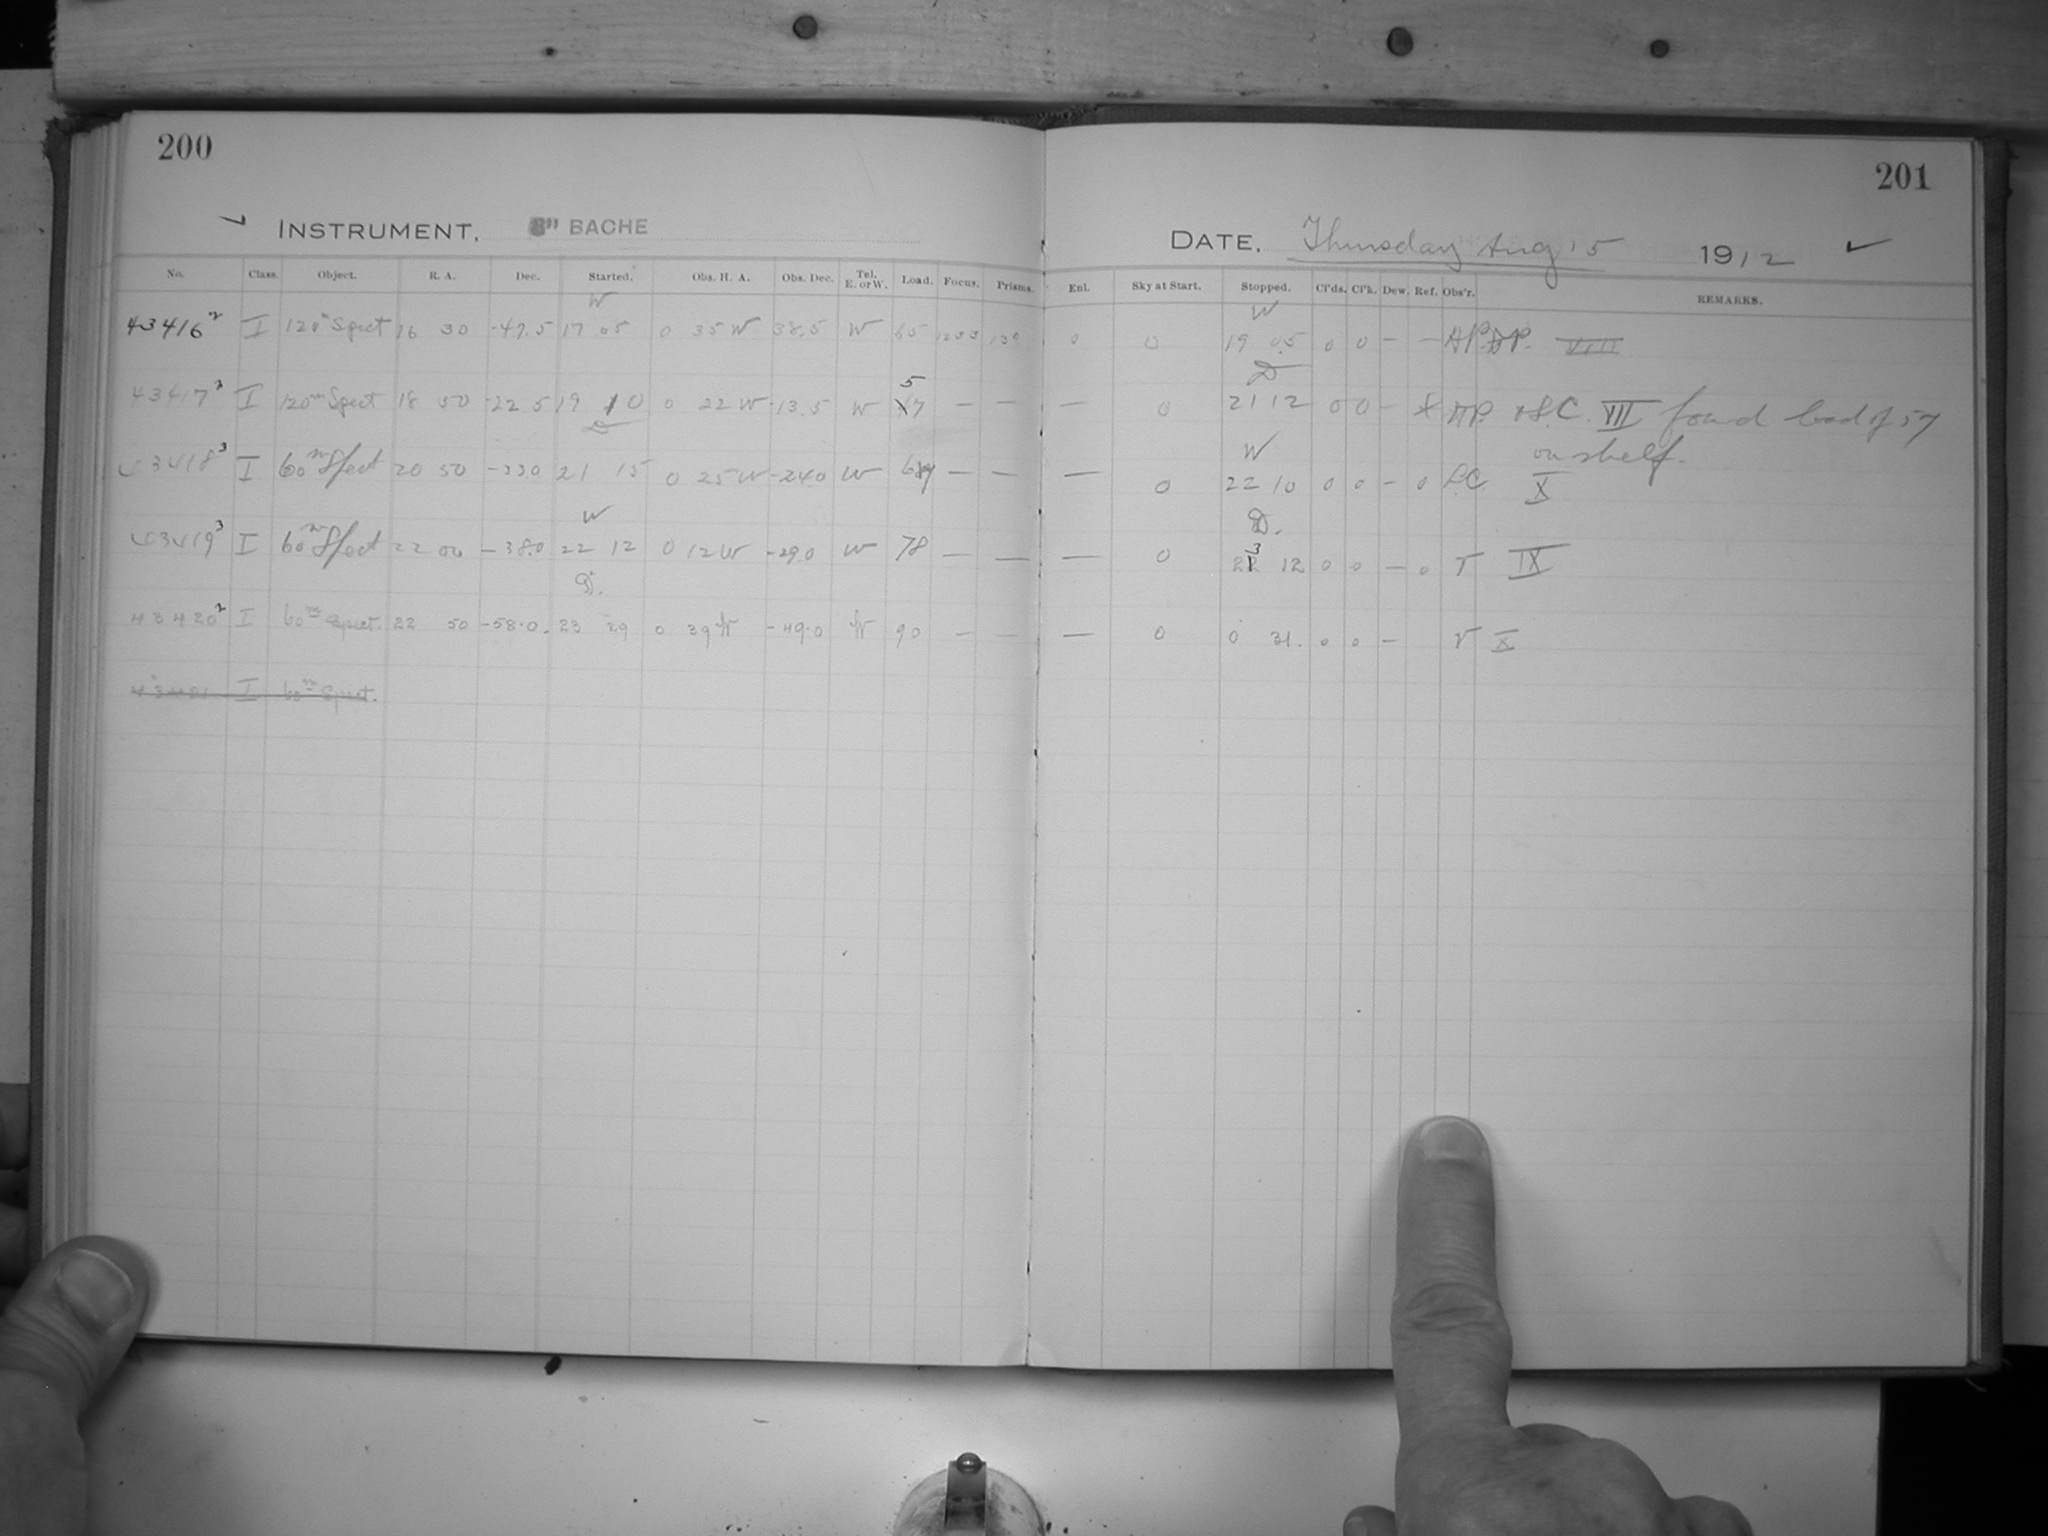 200
INSTRUMENT. 8" BACHE
No. Class. Object. R. A. Dec. Started. Obs. H. A. Obs. Dec. Tel. E. or W. Load. Focus. Prisms.
W
43416² I 120ᵐ Spect 16 30 -47.5 17 05 0 35 W 38.5 W 65
5
43417³ I 120ᵐ Spect 18 50 -22.5 19 10 0 22 W -13.5 W 7 — —
D
43418³ I 60ᵐ Spect 20 50 -33.0 21 15 0 25 W -24.0 W — —
W
43419³ I 60ᵐ Spect 22 00 -38.0 22 12 0 12 W -29.0 W 78 — —
D.
43420² I 60ᵐ Spect. 22 50 -58.0. 23 29 0 39 W -49.0 W 90 — —
43421 I 60ᵐ Spect.
201
DATE. Thursday Aug 15 1912
Enl. Sky at Start. Stopped. Cl'ds. Cl'k. Dew. Ref. Obs'r. REMARKS.
W
0 0 19 05 0 0 – – AP. VIII
D
— 0 21 12 0 0 – AP. + S.C. VIII found load of 57
on shelf.
W
— 0 22 10 0 0 – 0 S.C. X
D.
3
— 0 22 12 0 0 — 0 T IX
— 0 0 31. 0 0 – V X